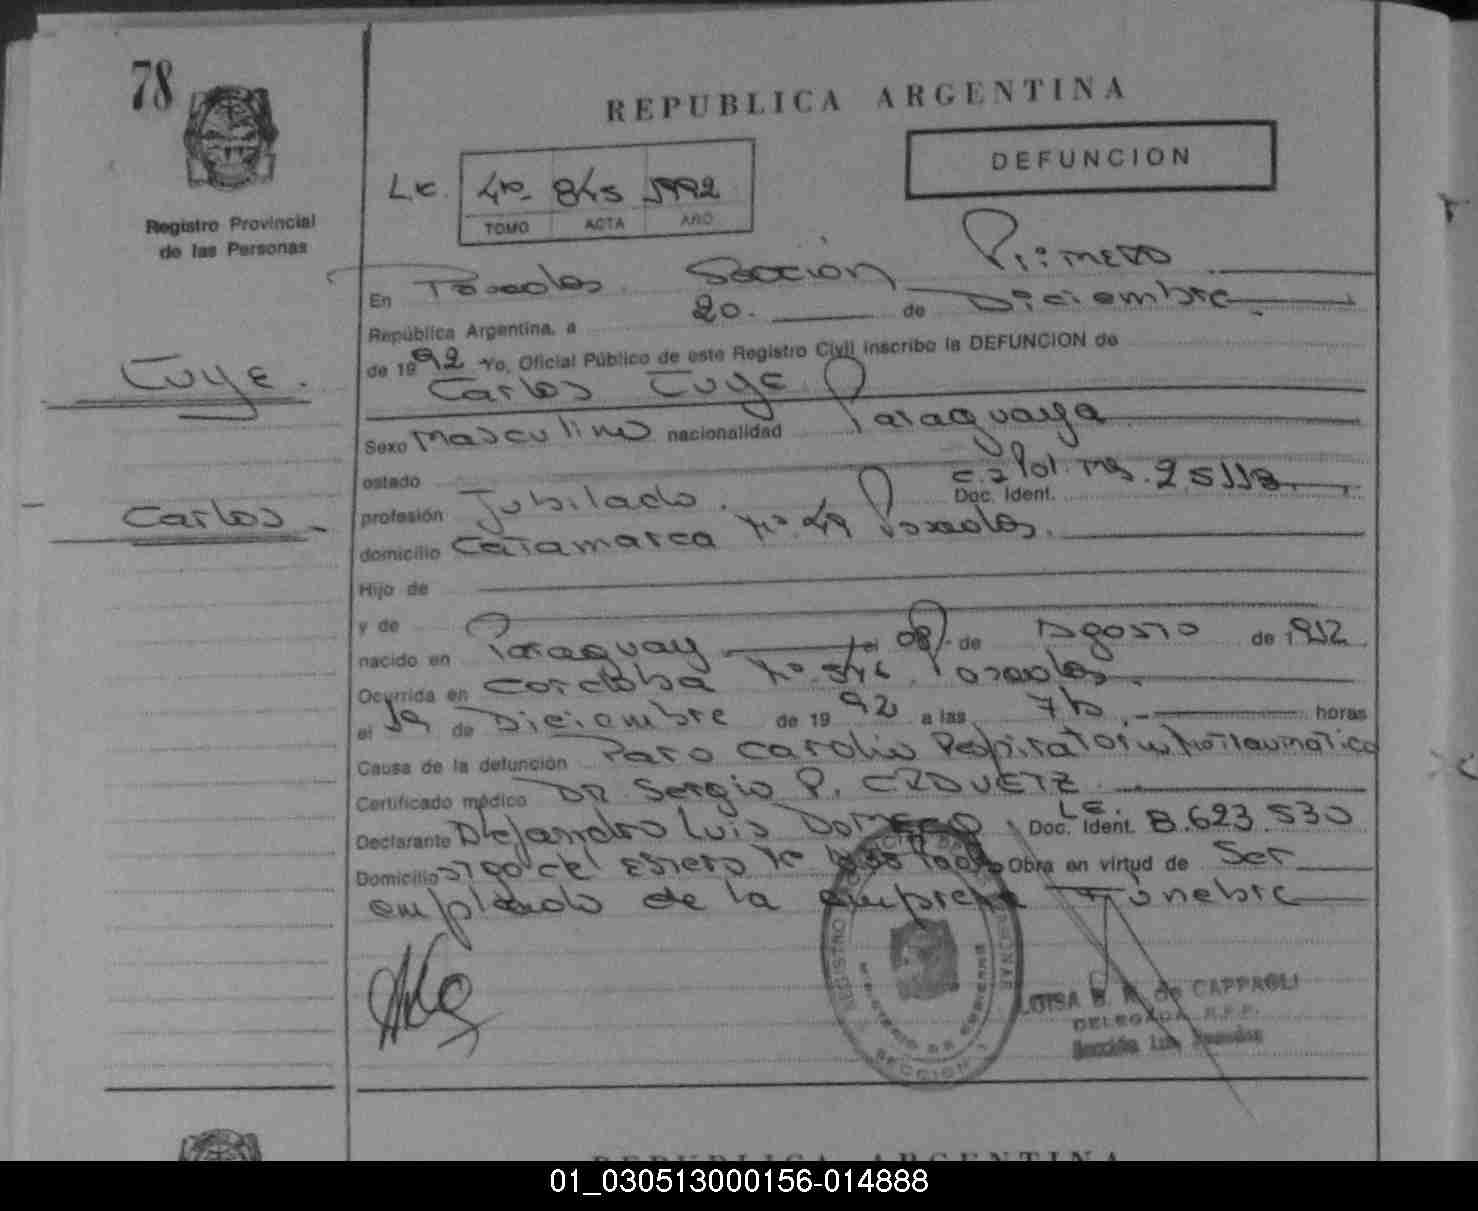 78
REPUBLICA ARGENTINA
DEFUNCION
Registro Provincial
de las Personas
4to 845 1992
TOMO ACTA AÑO
En Posadas Sección Primera
República Argentina, a 20 de Diciembre
de 1992 Yo, Oficial Público de este Registro Civil inscribo la DEFUNCION de
Cuye.
Carlos Cuye
Sexo Masculino nacionalidad Paraguaya
estado
Carlos
profesión Jubilado. Doc. Ident. Pol. Ms. 25118
domicilio Catamarca No. 49 Posadas.
Hijo de
y de
nacido en Paraguay el 08 de Agosto de 1912
Ocurrida en Cordoba No. 546 Posadas.
el 19 de Diciembre de 1992 a las 7 horas
Causa de la defunción Paro Cardio Respiratorio
Certificado médico DR. Sergio P.
Declarante Alejandro Luis Doc. Ident. L.E. 8.623.530
Domicilio Stgo del Estero Obra en virtud de Ser
empleado de la empresa Fúnebre
LUISA de CAPPAGLI
DELEGADA R.P.P.
Sección
SECCION 1
REPUBLICA ARGENTINA
01_030513000156-014888